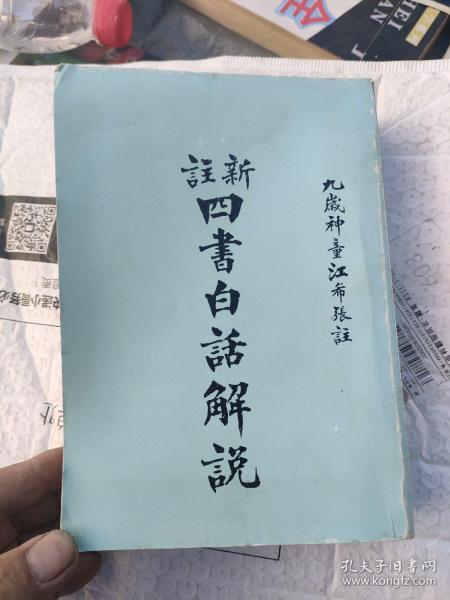 九歲神童江希張註
新註
四書白話解說
孔夫子旧书网
www.kongfz.com